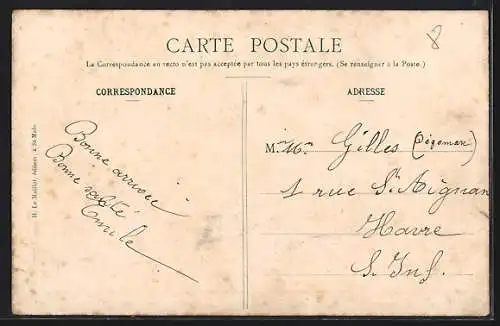 8
CARTE POSTALE
La Correspondance au recto n'est pas acceptée par tous les pays étrangers. (Se renseigner à la Poste.)
CORRESPONDANCE
Bonne arrivée
Bonne santé
Emile
ADRESSE
M. Gilles
1 rue St Aignan
Havre
S. Inf.